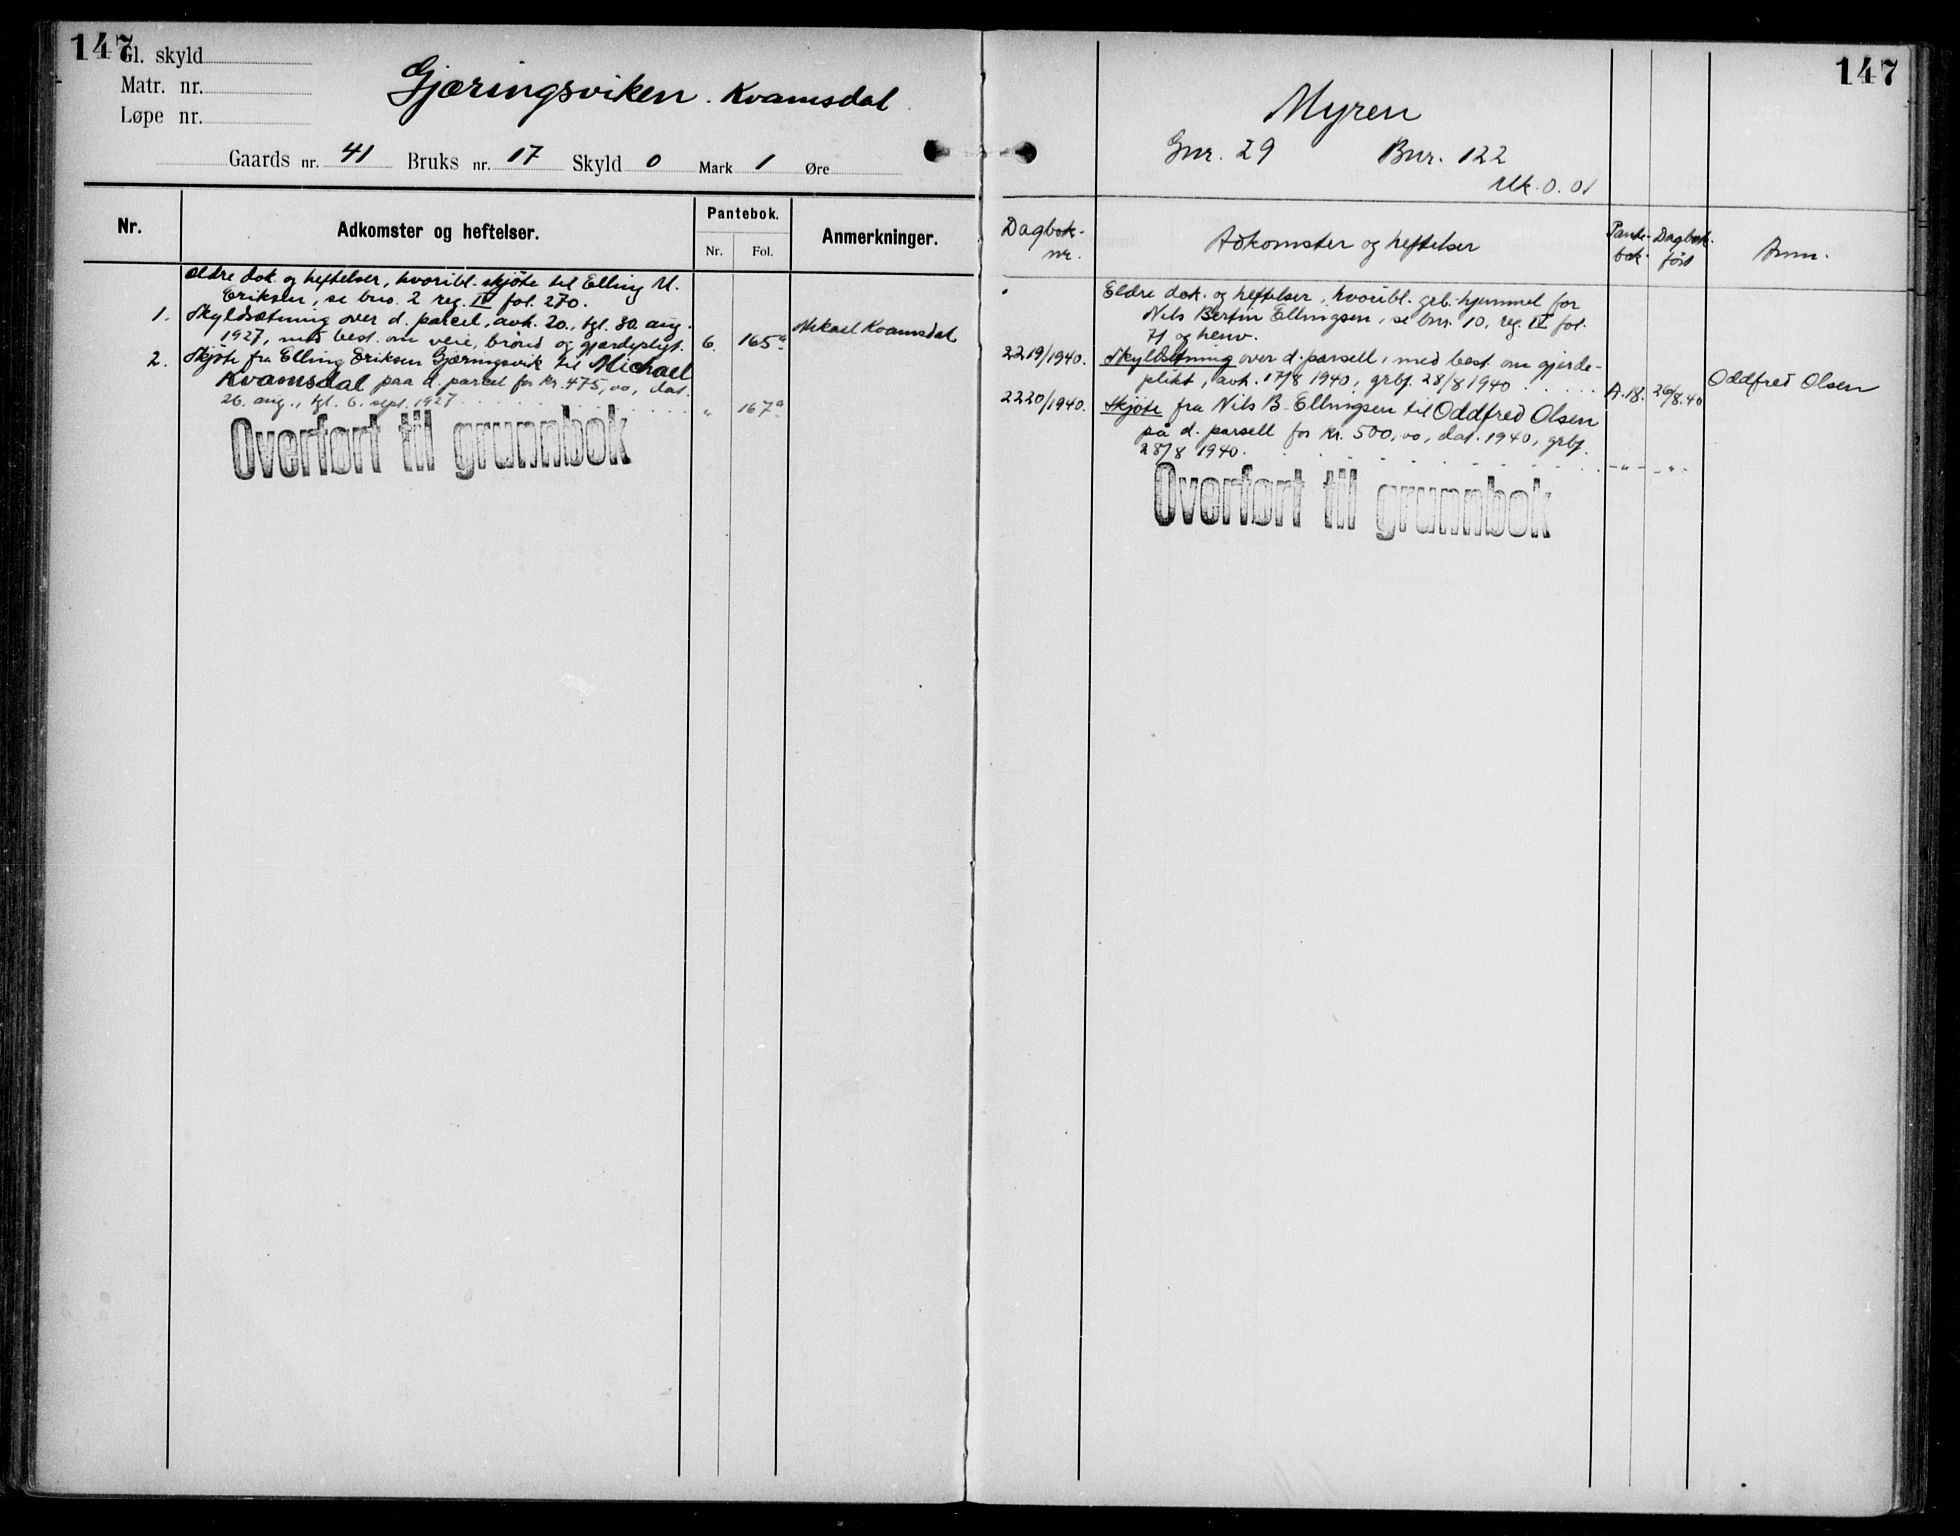 147
Gl. skyld
Matr. nr.
Løpe nr.
Gjæringsviken. Kvamsdal
Gaards nr. 41 Bruks nr. 17 Skyld 0 Mark 1 Øre
Nr. Adkomster og heftelser. Pantebok. Nr. Fol. Anmerkninger.
Ældre dok. og heftelser, hvoribl. skjøte til Elling M.
Eriksen, se bno. 2 reg. IV fol. 270.
1. Skyldsætning over d. parcel, avh. 20., tgl. 30. aug.
1927, med best. om veie, brønd og gjærdepligt. 6. 165a Mikael Kvamsdal
2. Skjøte fra Elling Eriksen Gjæringsvik til Michael
Kvamsdal paa d. parcel for kr. 475,00, dat.
26. aug., tgl. 6. sept. 1927 " 167a
Overført til grunnbok
147
Myren
Gnr. 29 Bnr. 122
Mk. 0.01
Dagbok-nr. Adkomster og heftelser Pante-bok. Dagbok. ført Anm.
Eldre dok. og heftelser, hvoribl. grb. hjemmel for
Nils Bertin Ellingsen, se bnr. 10, reg. IV fol.
71 og henv.
2219/1940. Skyldsetning over d. parsell, med best. om gjerde-
plikt, avh. 17/8 1940, grbf. 28/8 1940 A.18. 26/8.40 Oddfred Olsen
2220/1940. Skjøte fra Nils B. Ellingsen til Oddfred Olsen
på d. parsell for kr. 500,00, dat. 1940, grbf.
28/8 1940. - " - - " -
Overført til grunnbok